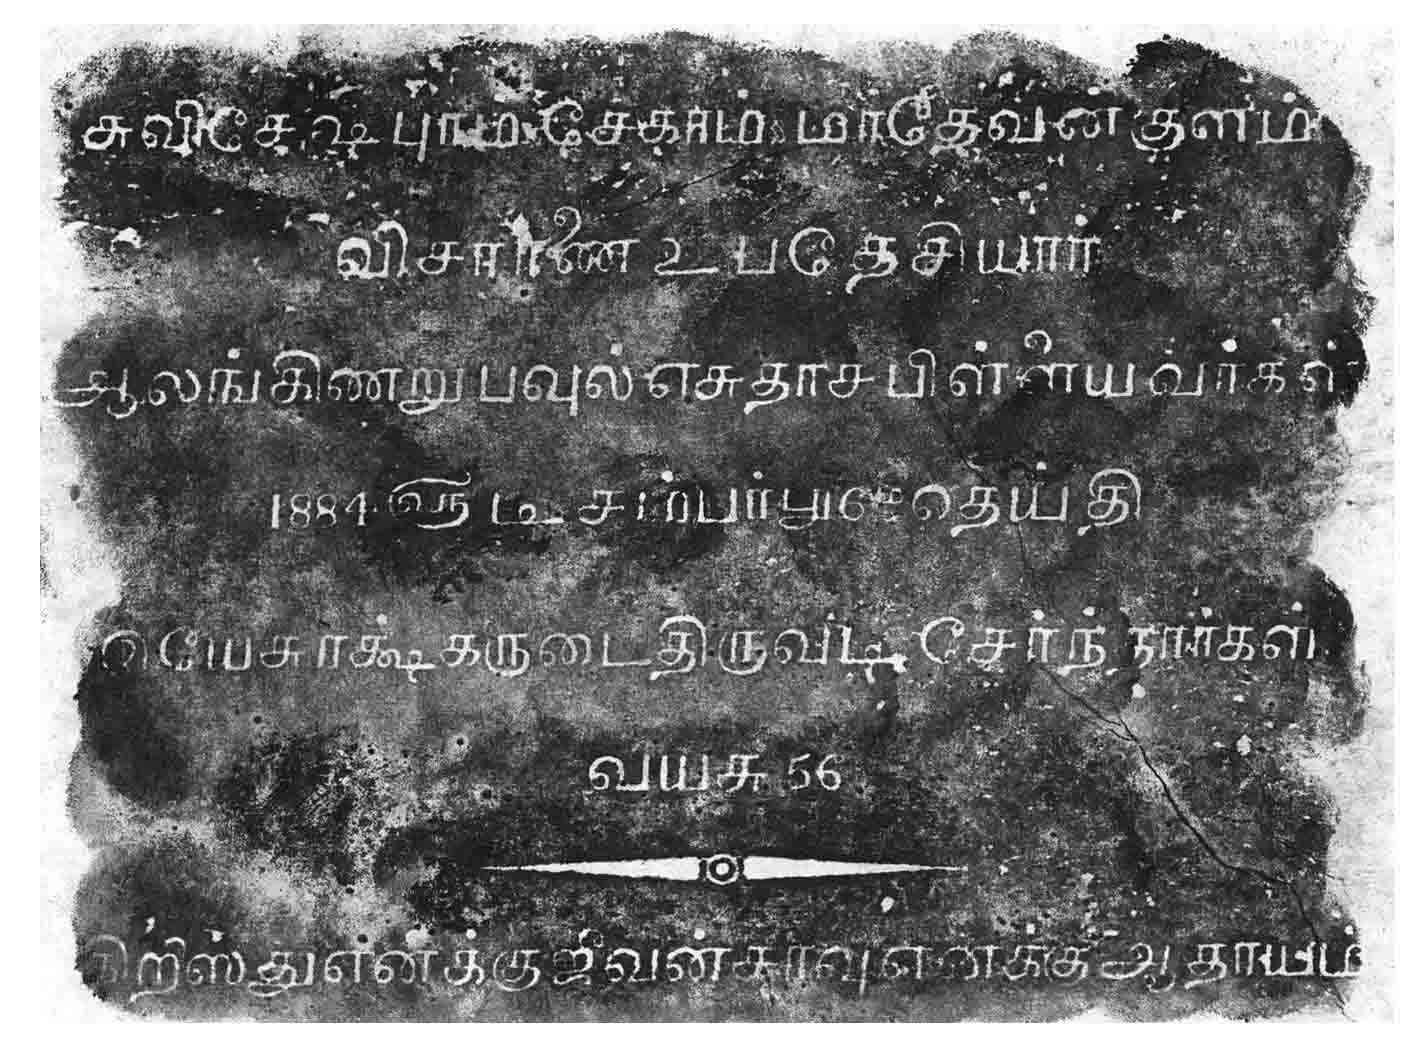 சுவிசேஷபுரம் சேகரம் மாதேவன்குளம்
விசாரணை உபதேசியார்
ஆலங்கிணறு பவுல் எசுதாச பிள்ளையவர்கள்
1884 ௵ டிசம்பர் ௴ தெய்தி
யேசு ரக்ஷகருடைதிருவடி சேர்ந்தார்கள்
வயசு 56
கிறிஸ்து எனக்கு ஜீவன் சாவு எனக்கு ஆதாயம்